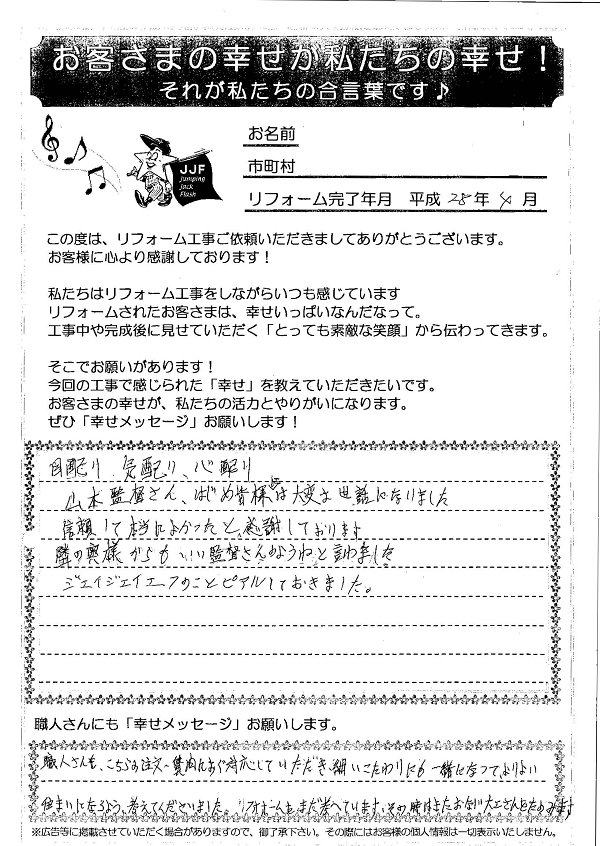 お客さまの幸せが私たちの幸せ!
それが私たちの合言葉です♪
JJF
Jumping
Jack
Flash
お名前
市町村
リフォーム完了年月 平成 28年 4月
この度は、リフォーム工事ご依頼いただきましてありがとうございます。
お客様に心より感謝しております!
私たちはリフォーム工事をしながらいつも感じています
リフォームされたお客さまは、幸せいっぱいなんだなって。
工事中や完成後に見せていただく「とっても素敵な笑顔」から伝わってきます。
そこでお願いがあります!
今回の工事で感じられた「幸せ」を教えていただきたいです。
お客さまの幸せが、私たちの活力とやりがいになります。
ぜひ「幸せメッセージ」お願いします!
目配り、気配り、心配り
山本監督さん、はじめ皆様には大変お世話になりました
信頼して本当によかったと、感謝しております
隣の奥様からも、いい監督さんのようねと言われました
ジェイジェイエフのことピアルしておきました。
職人さんにも「幸せメッセージ」お願いします。
職人さんも、こちらの注文、質問にすぐ対応していただき、細いこだわりにも一緒になって、よりよい
住まいになるよう、考えてくださいました。リフォームもまだ考えています。その時はまたおなじ大工さんをたのみます
※広告等に掲載させていただく場合がありますので、御了承下さい。その際にはお客様の個人情報は一切表示いたしません。